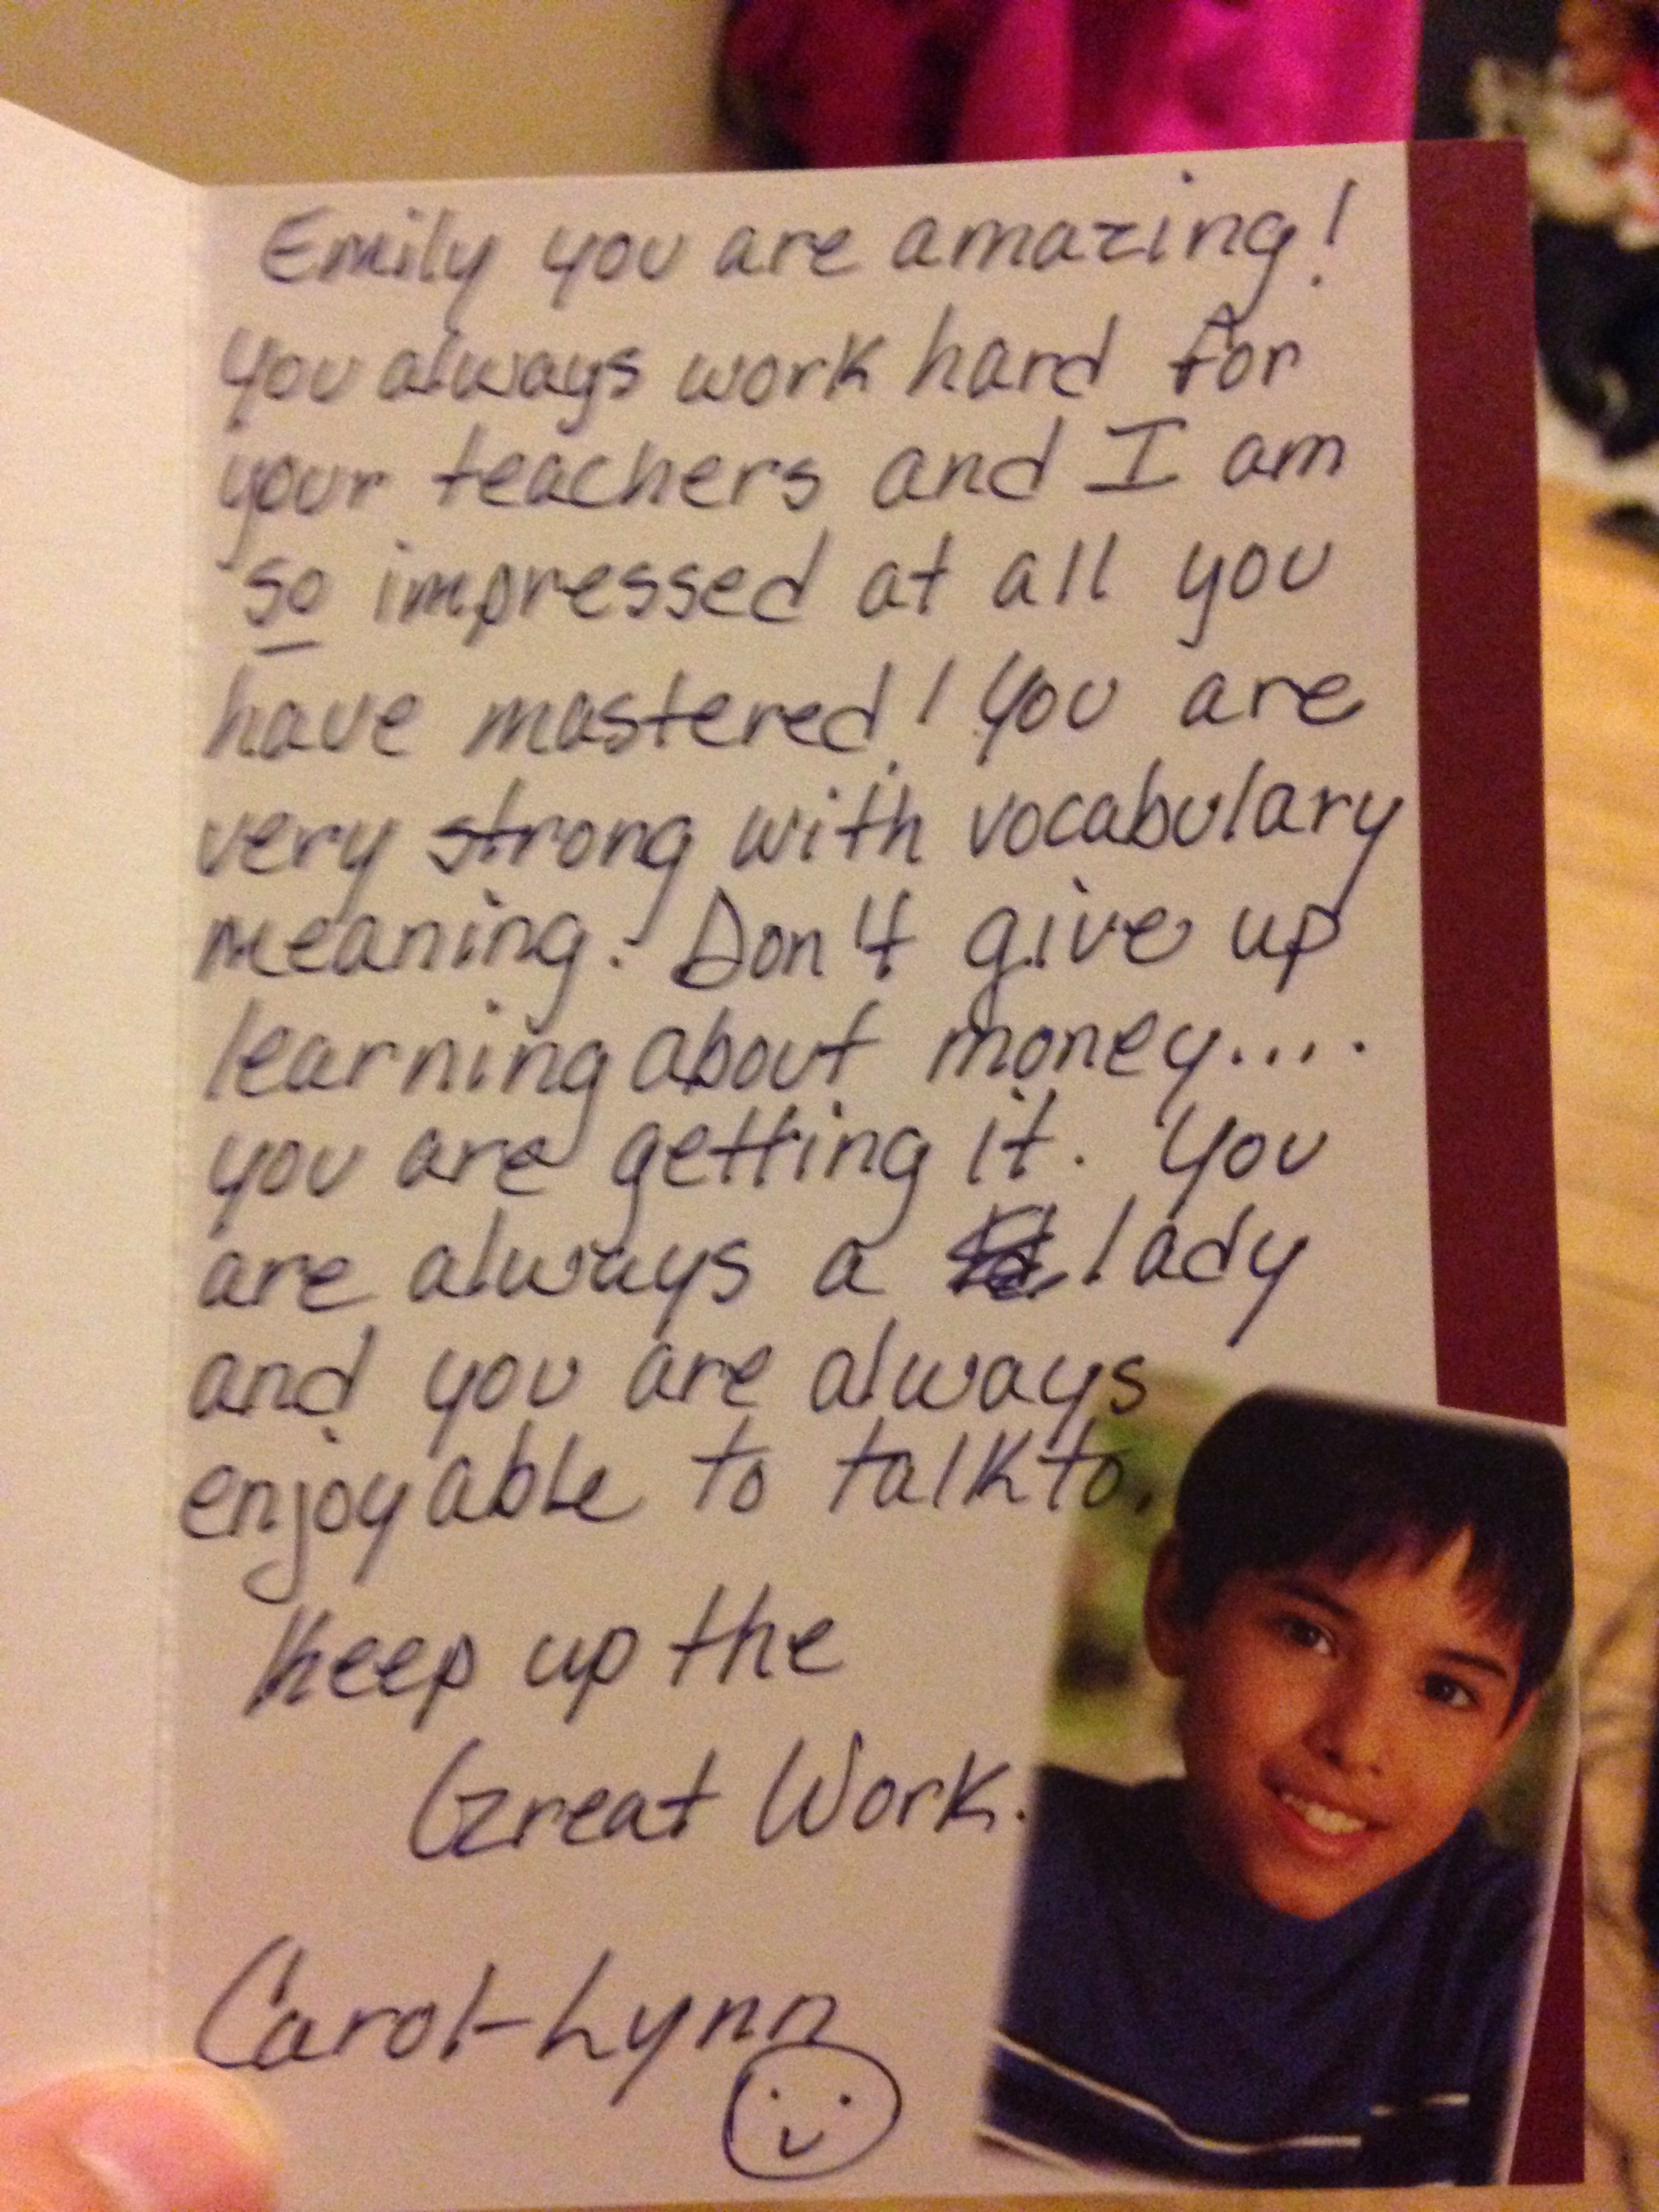 Emily you are amazing!
You always work hard for
your teachers and I am
so impressed at all you
have mastered! You are
very strong with vocabulary
meaning. Don't give up
learning about money....
you are getting it. You
are always a lady
and you are always
enjoyable to talk to.
Keep up the
Great Work.
Carol-Lynn